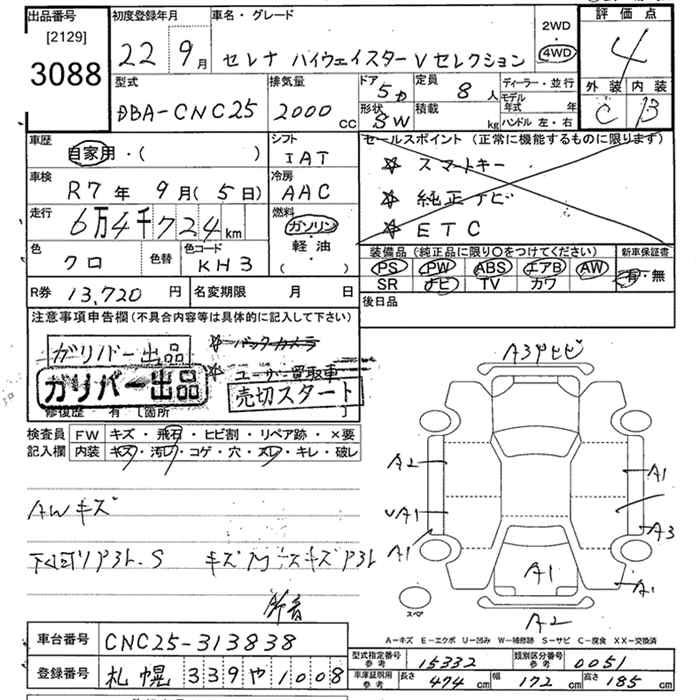 出品番号
[2129]
3088
初度登録年月
22年9月
車名・グレード
セレナ ハイウェイスター V セレクション
2WD
・
4WD
評価点
4
外装 内装
C B
型式
DBA-CNC25
排気量
2000 CC
ドア
5D
形状
SW
定員
8人
積載
kg
ディーラー・並行
モデル年式 年
ハンドル 左・右
車歴
自家用・( )
シフト
IAT
車検
R7年9月(5日)
冷房
AAC
走行
6万4千724km
燃料
ガソリン
・
軽油
・
( )
色
クロ
色替
色コード
KH3
セールスポイント (正常に機能するものに限ります)
☆ スマートキー
☆ 純正ナビ
☆ ETC
装備品 (純正品に限り○をつけてください)
PS PW ABS エアB AW
SR ナビ TV カワ
新車保証書
有・無
R券 13,720円
名変期限 月 日
後日品
注意事項申告欄(不具合内容等は具体的に記入して下さい)
ガリバー出品
☆ バックカメラ
ガリバー出品
☆ ユーザー買取車
売切スタート
修復歴 有 [箇所 ]
検査員記入欄
FW キズ・飛石・ヒビ割・リペア跡・×要
内装 キズ・汚レ・コゲ・穴・スレ・キレ・破レ
AWキズ
下回りサビ.S
A3サビビ
A2
A1
UA1
A3
A1
A1
A1
A2
スペア
A-キズ E-エクボ U-凹み W-補修跡 S-サビ C-腐食 XX-交換済
車台番号 CNC25-313838
登録番号 札幌 339 や 1008
型式指定番号 参考 15332
類別区分番号 参考 0051
車庫証明用 参考 長さ 474cm 幅 172cm 高さ 185cm